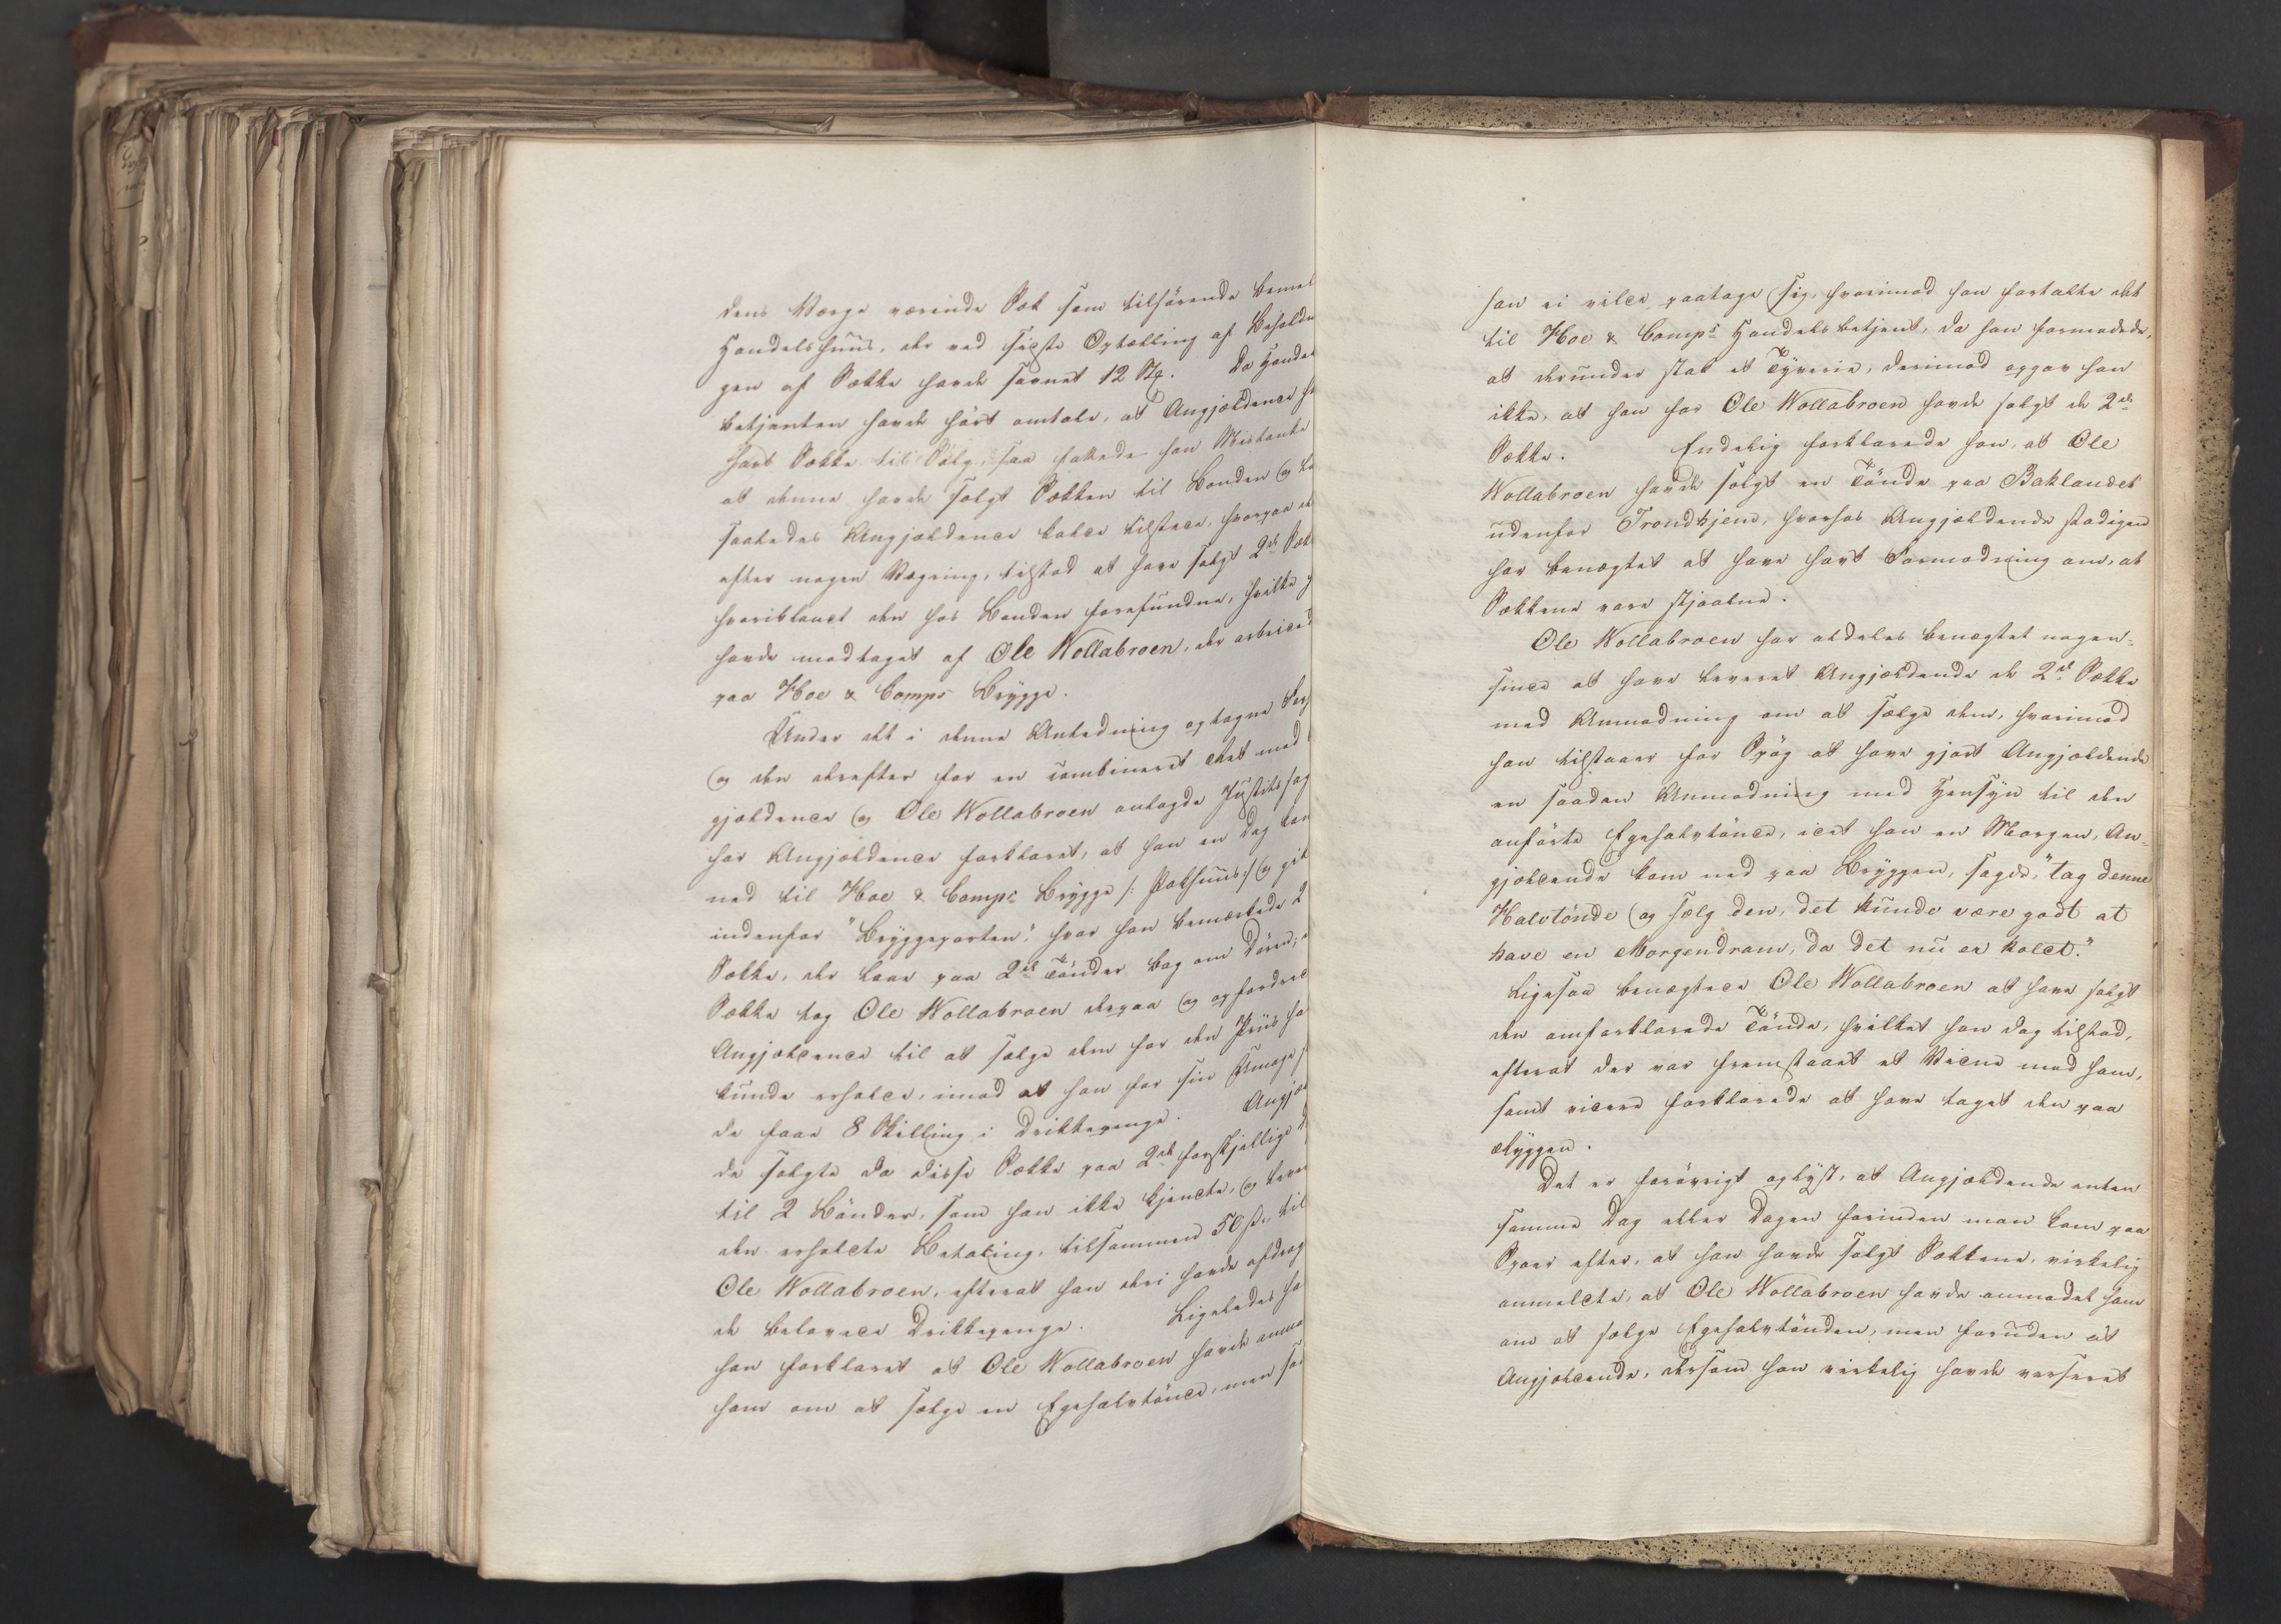 dens Værge værende Sæk som tilhörende bemel
Handelshuus, der ved sidste Optælling af Beholdn
gen af Sække havde savnet 12 St. Da Handel
betjenten havde hört omtale, at Angjældende h
havt Sække til Salg, saa fattede han Mistanke
at denne havde solgt Sækken til Bonden og
saaledes Angjældende tilstede, hvorpaa
efter nogen Vægring, tilstod at have solgt 2de Sæk
hvoriblandt den hos Bonden forefundne, hvilke
havde modtaget af Ole Wollabroen, der arbeided
paa Hoe & Comps Brygge.
Under det i denne Anledning optagne For
og den derefter for en combineret Ret mod
gjældende og Ole Wollabroen anlagde Justitssag
har Angjældende forklaret, at han en Dag kom
ned til Hoe & Comps Brygge /: Pakhuus :/ og gik
indenfor "Bryggeporten", hvor han bemærkede 2
Sække, der laae paa 2de Tönder bag om Dören;
Sække tog Ole Wollabroen derpaa og opfordred
Angjældende til at sælge dem for den Priis ha
kunde erholde, imod at han for sin Umage s
de faae 8 Skilling i Drikkepenge. Angjæ
de solgte da disse Sække paa 2de forskjellige
til 2 Bönder, som han ikke kjendte, og lever
den erholdte Betaling, tilsammen 50 s. til
Ole Wollabroen, efterat han deri havde afdrag
de belovede Drikkepenge. Ligeledes ha
han forklaret at Ole Wollabroen havde anmo
ham om at sælge en Egehalvtönde, men saa
han ei vilde paatage sig, hvorimod han fortalte det
til Hoe & Comps Handelsbetjent, da han formodede,
at derunder stak et Tyverie, derimod opgav han
ikke, at han for Ole Wollabroen havde solgt de 2de
Sække. Endelig forklarede han, at Ole
Wollabroen havde solgt en Tönde paa Baklandet
udenfor Trondhjem, hvorhos Angjældende stadigen
har benægtet at have havt Formodning om, at
Sækkene vare stjaalne.
Ole Wollabroen har aldeles benægtet nogen-
sinde at have leveret Angjældende de 2de Sække
med Anmodning om at sælge dem, hvorimod
han tilstaaer for Spög at have gjort Angjældende
en saadan Anmodning med Hensyn til den
anförte Egehalvtönde, idet han en Morgen, An-
gjældende kom ned paa Bryggen, sagde, "tag denne
Halvtönde og sælg den, det kunde være godt at
have en Morgendram, da det nu er koldt."
Ligesaa benægtede Ole Wollabroen at have solgt
den omforklarede Tönde, hvilket han dog tilstod,
efterat der var fremstaaet et Vidne mod ham,
samt videre forklarede at have taget den paa
Bryggen.
Det er forövrigt oplyst, at Angjældende enten
samme Dag eller Dagen forinden man kom paa
Spoer efter, at han havde solgt Sækkene, virkelig
anmeldte, at Ole Wollabroen havde anmodet ham
om at sælge Egehalvtönden, men foruden at
Angjældende, dersom han virkelig havde